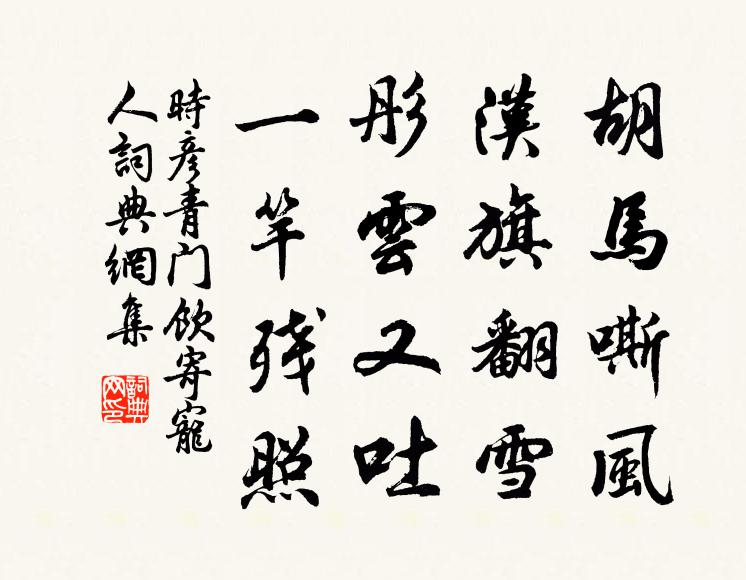 胡馬嘶風
漢旗翻雪
彤雲又吐
一竿残照
時彦青门飲寄寵
人詞典網集
詞典网印